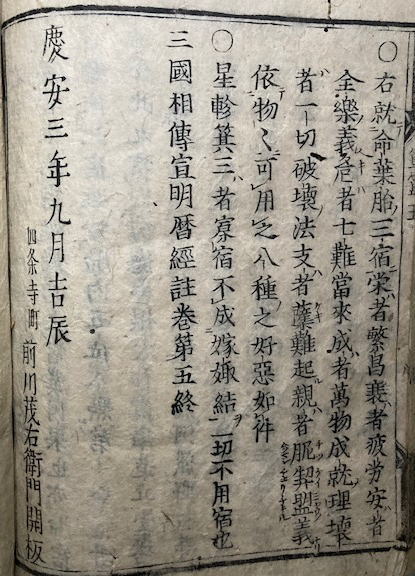 〇右就命葉胎三宿栄者繁昌裏者疲労安者
全樂義危者七難當來成者萬物成就理壊
者一切破壊法支者蘖難起親者昵契盟義
依物〻可用之八種之好惡如件
〇星軫箕三者寡宿不成嫁娵結ヿ一切不用宿也
三國相傳宣明暦經註巻第五終
慶安三年九月吉辰
四条寺町 前川茂右衛門開板